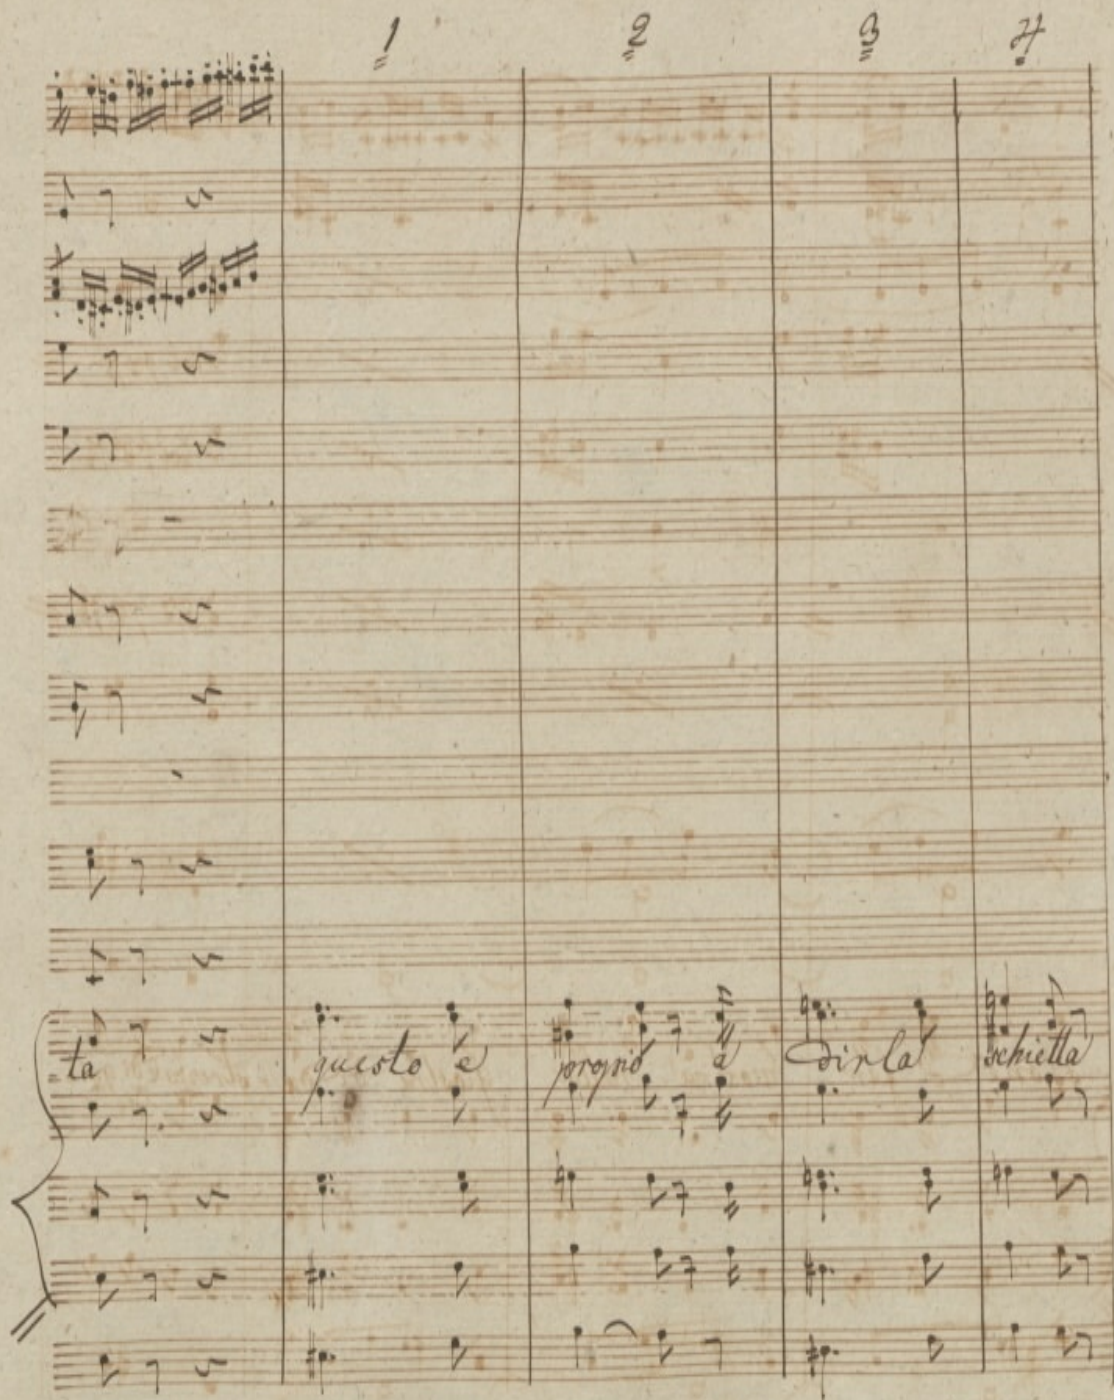 1 2 3 4
ta questo è proprio a dirla schietta